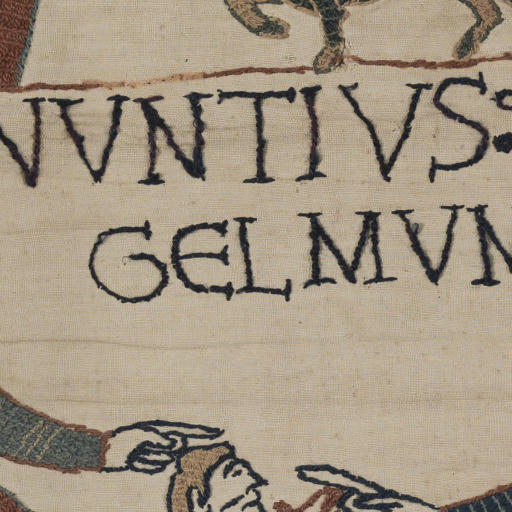 NVNTIVS:
GELMVM